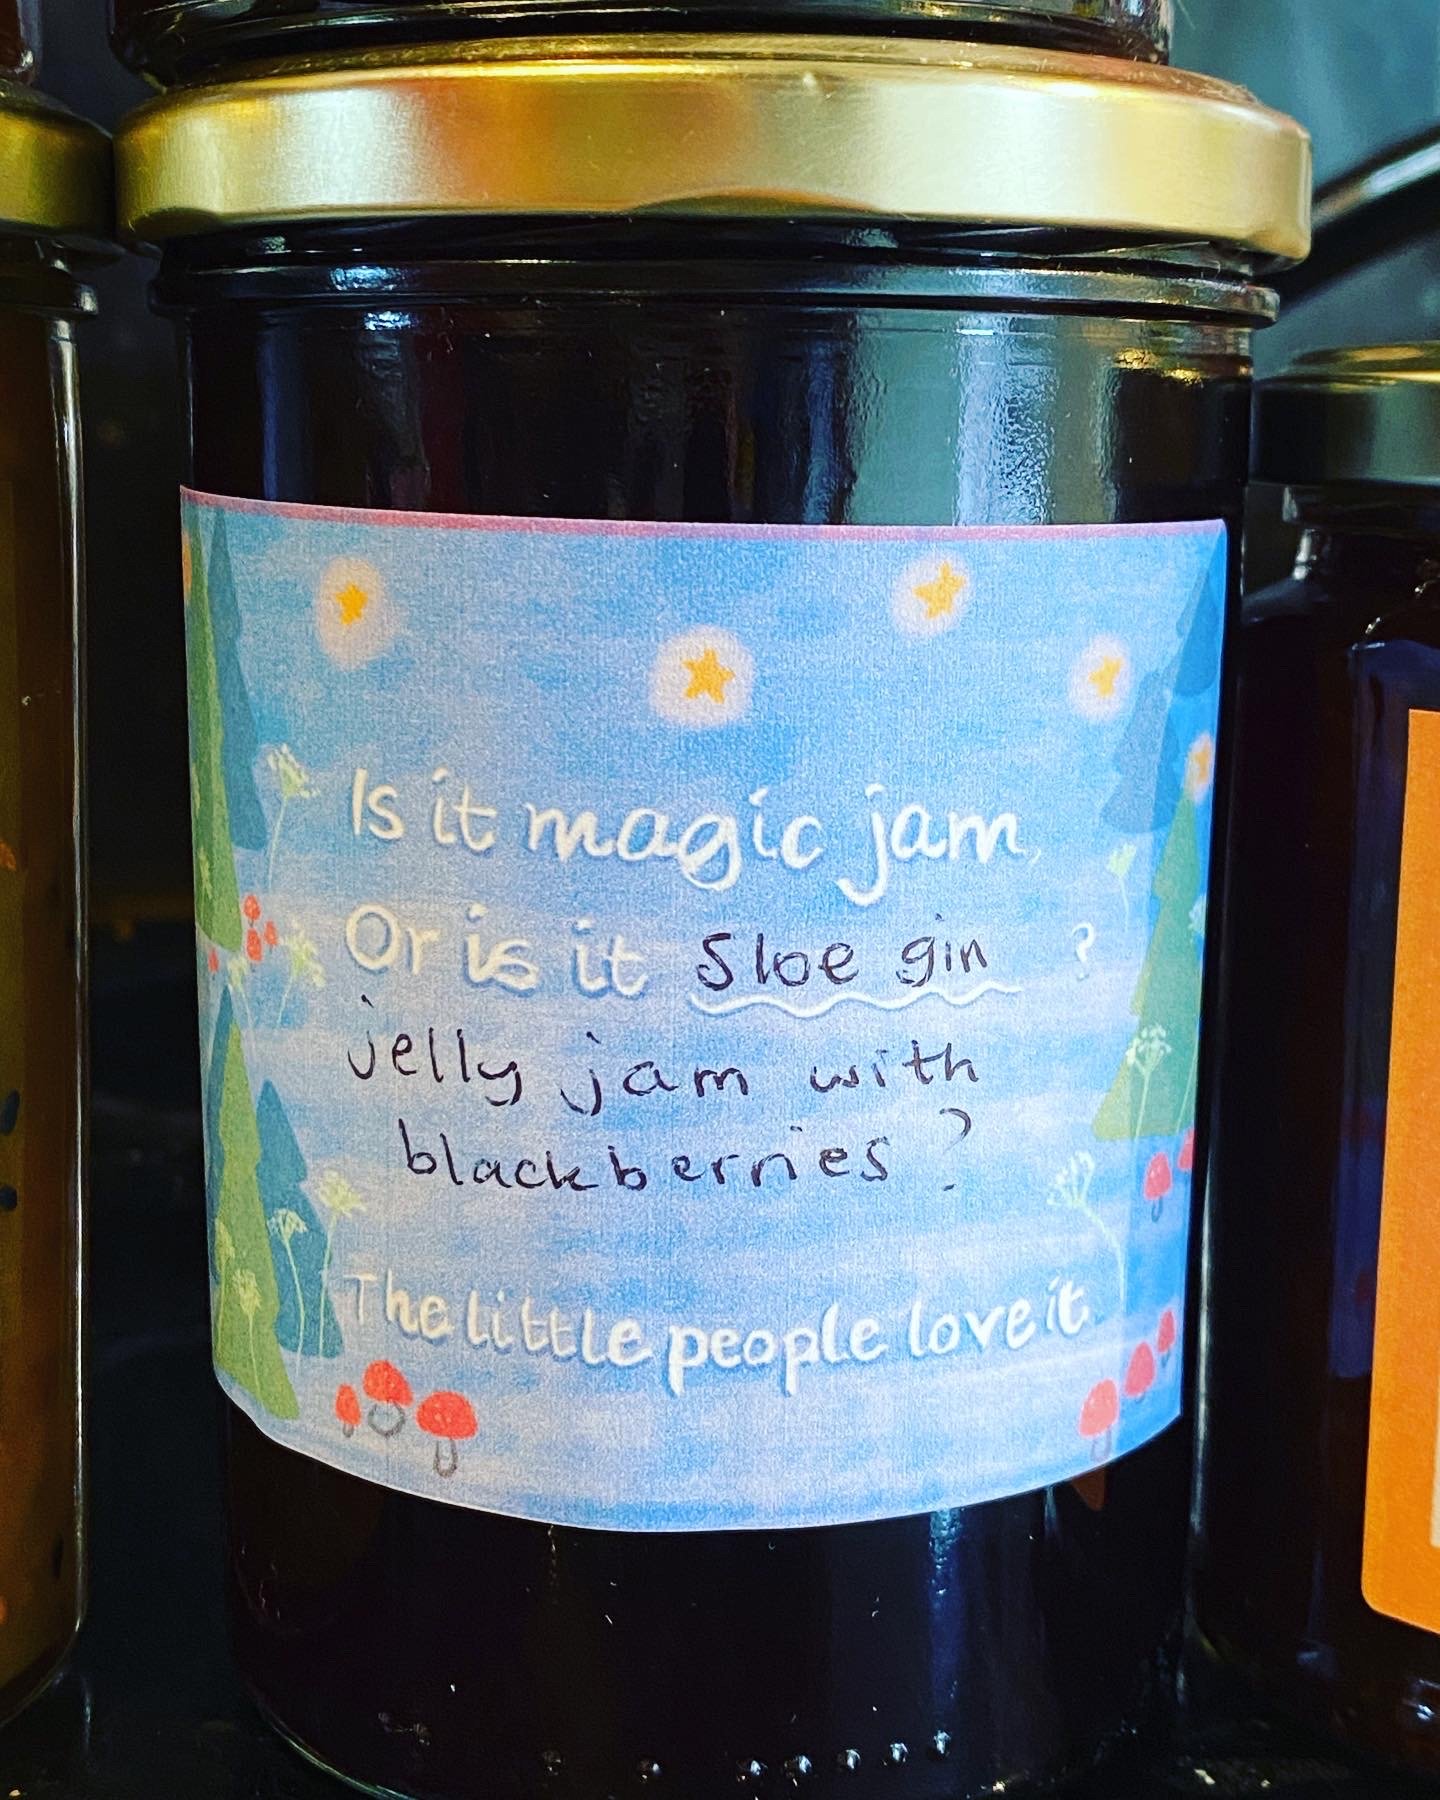 Is it magic jam,
Or is it sloe gin ?
jelly jam with
blackberries ?
The little people love it.